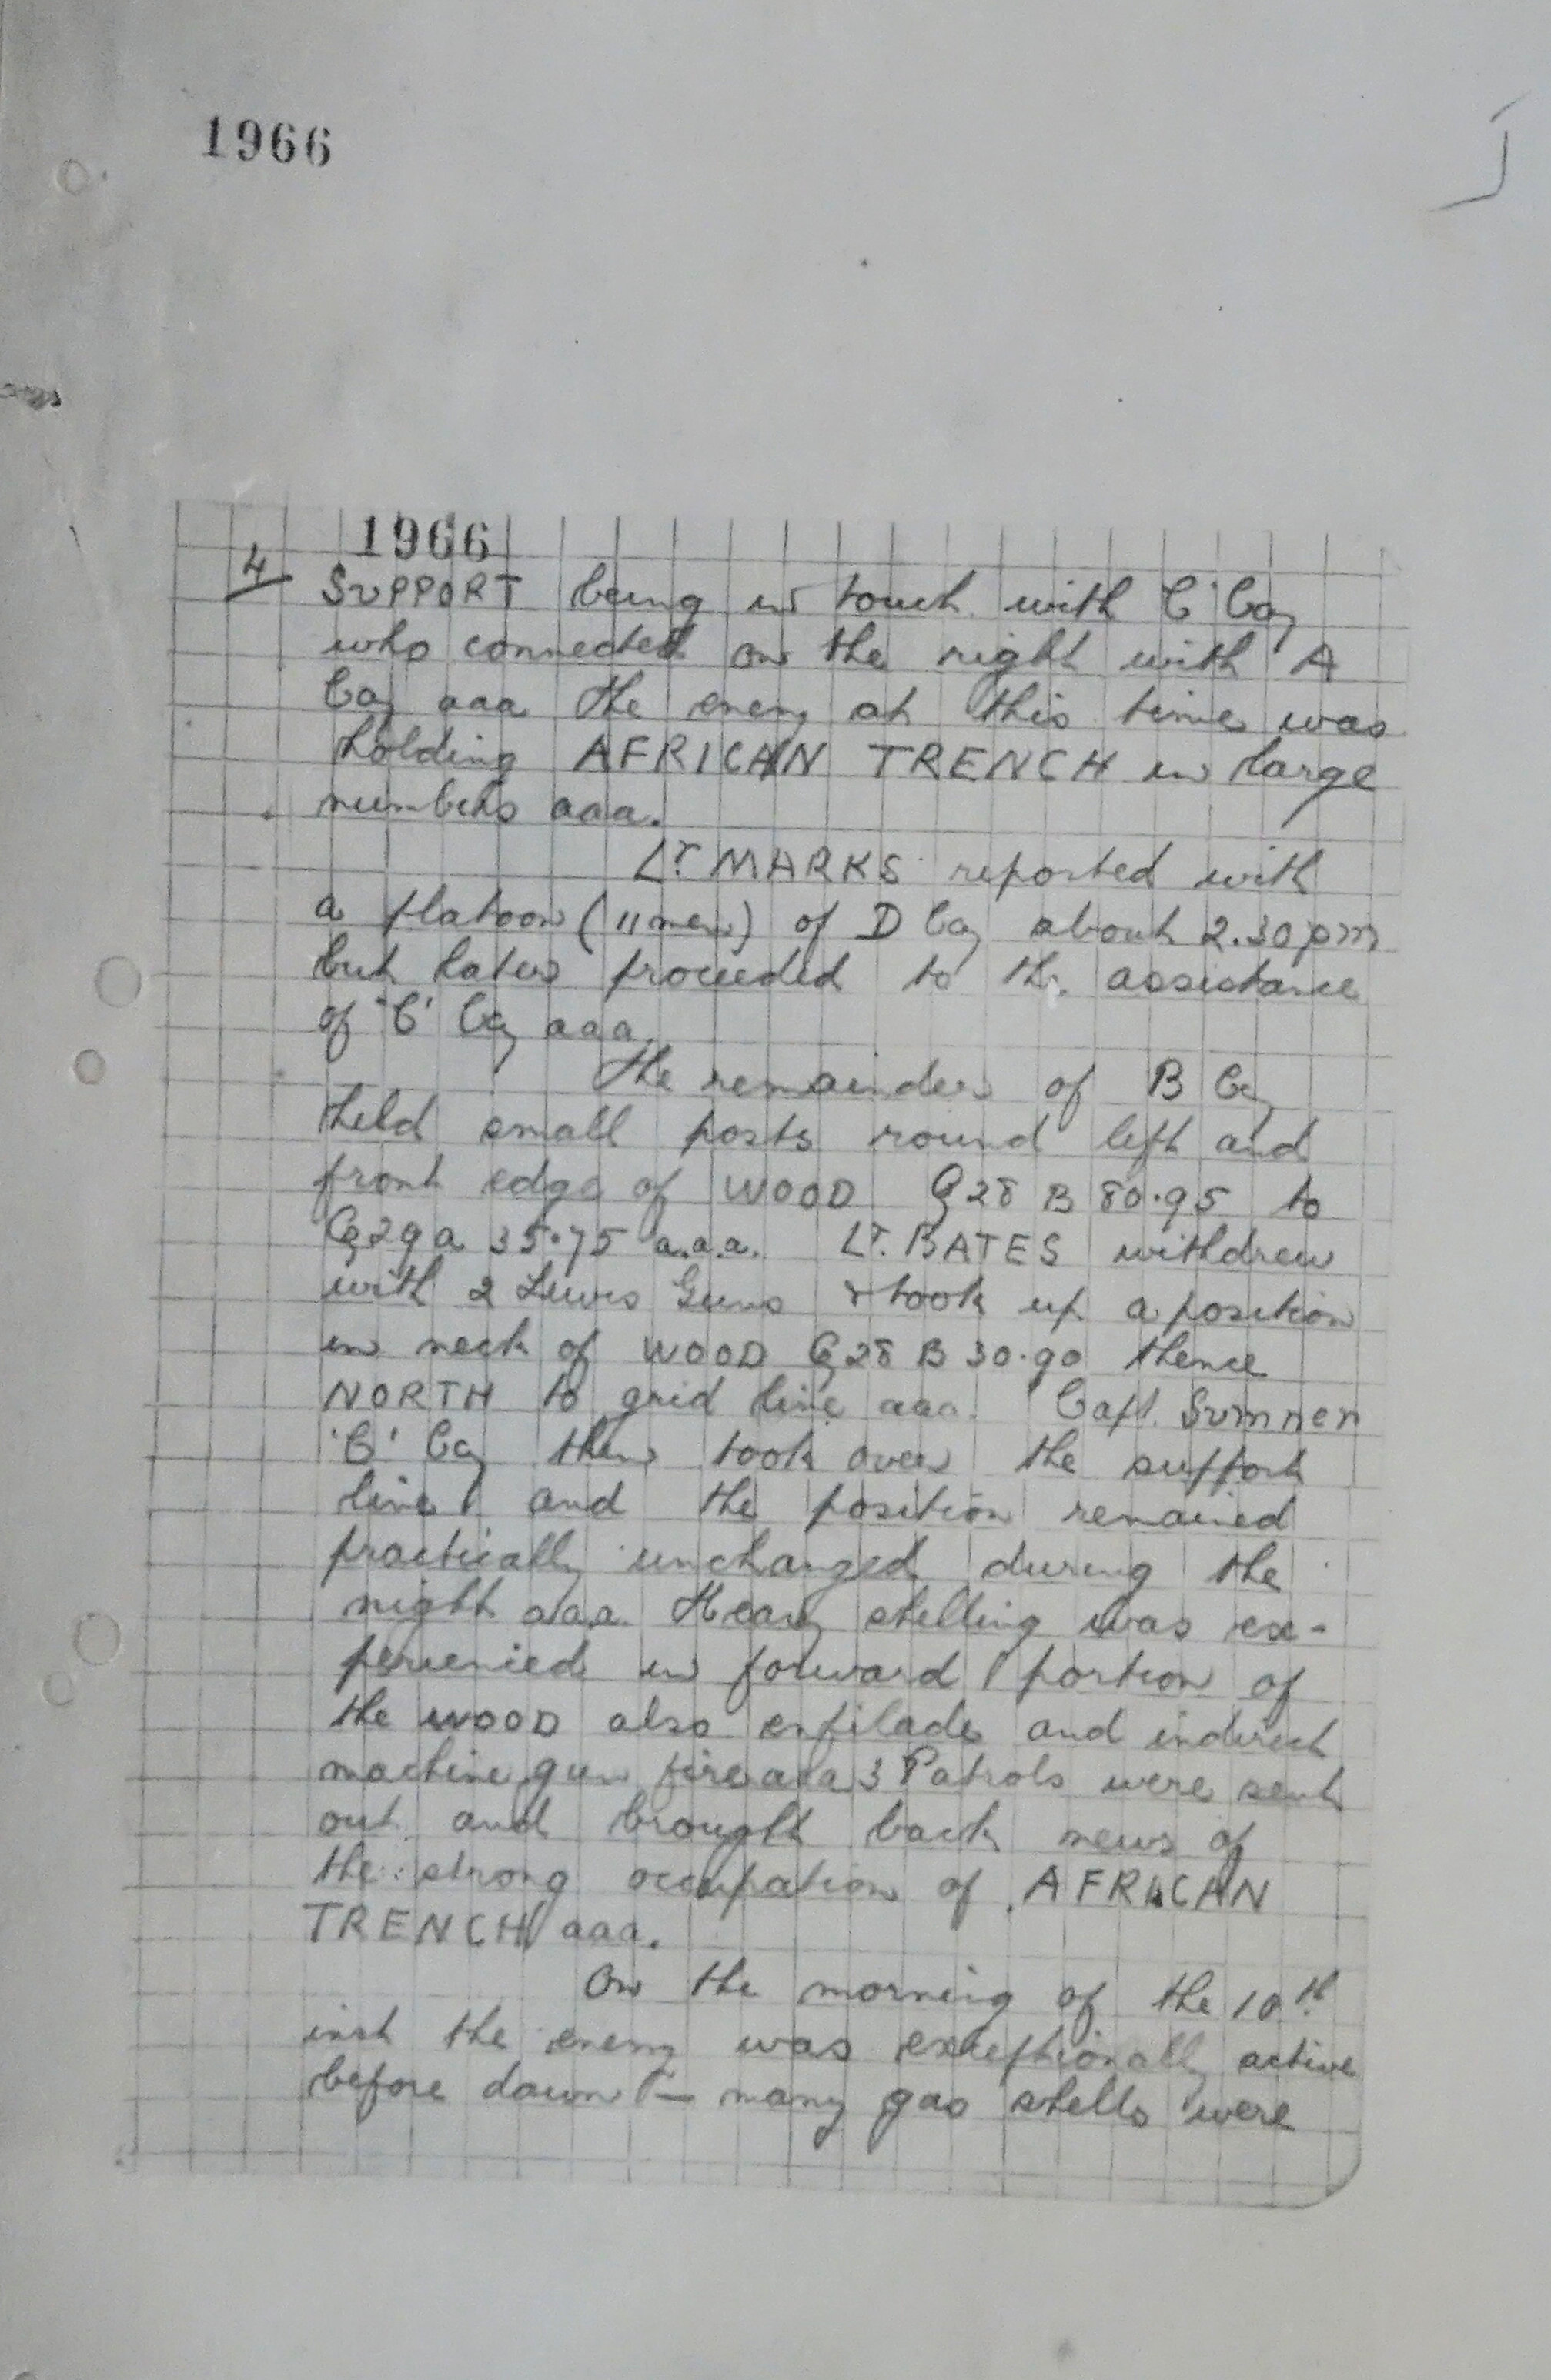 1966
1966
4
SUPPORT being in touch with 'C' Coy
who connected on the right with A
Coy aaa The enemy at this time was
holding AFRICAN TRENCH in large
numbers aaa.
LT. MARKS reported with
a platoon (11 men) of D Coy about 2.30 pm
but later proceeded to the assistance
of 'C' Coy aaa.
The remainder of B Coy
held small posts round left and
front edge of WOOD Q28 B 80.95 to
Q29 a 35.75 a.a.a. LT. BATES withdrew
with 2 Lewis Guns & took up a position
in neck of WOOD Q28 B 30.90 thence
NORTH to grid line aaa. Capt. Sumner
'C' Coy then took over the support
line and the position remained
practically unchanged during the
night aaa Heavy shelling was ex-
perienced in forward portion of
the WOOD also enfilade and indirect
machine gun fire aaa 3 Patrols were sent
out and brought back news of
the strong occupation of AFRICAN
TRENCH aaa.
On the morning of the 10th
inst the enemy was exceptionally active
before dawn — many gas shells were